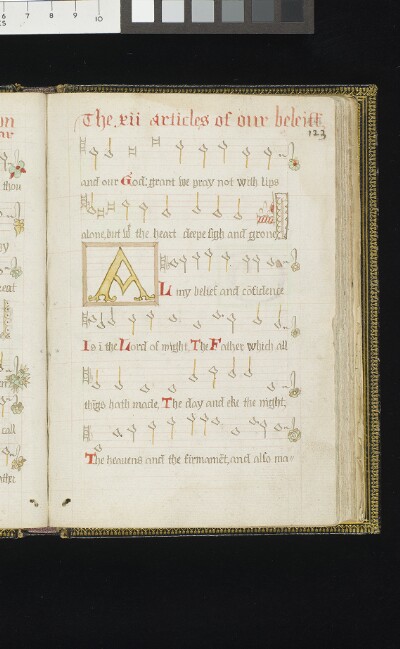 The xii articles of our beleiffe
123
and our God, grant we pray not with lips
alone, but wt the heart deepe sigh and grone
A
Ll my belief and cõfidence
Is ĩ the Lord of might, The Father which all
thĩgs hath made, The day and eke the night,
The heavens and the firmamẽt, and also ma=
thou
call
6 7 8 9 10